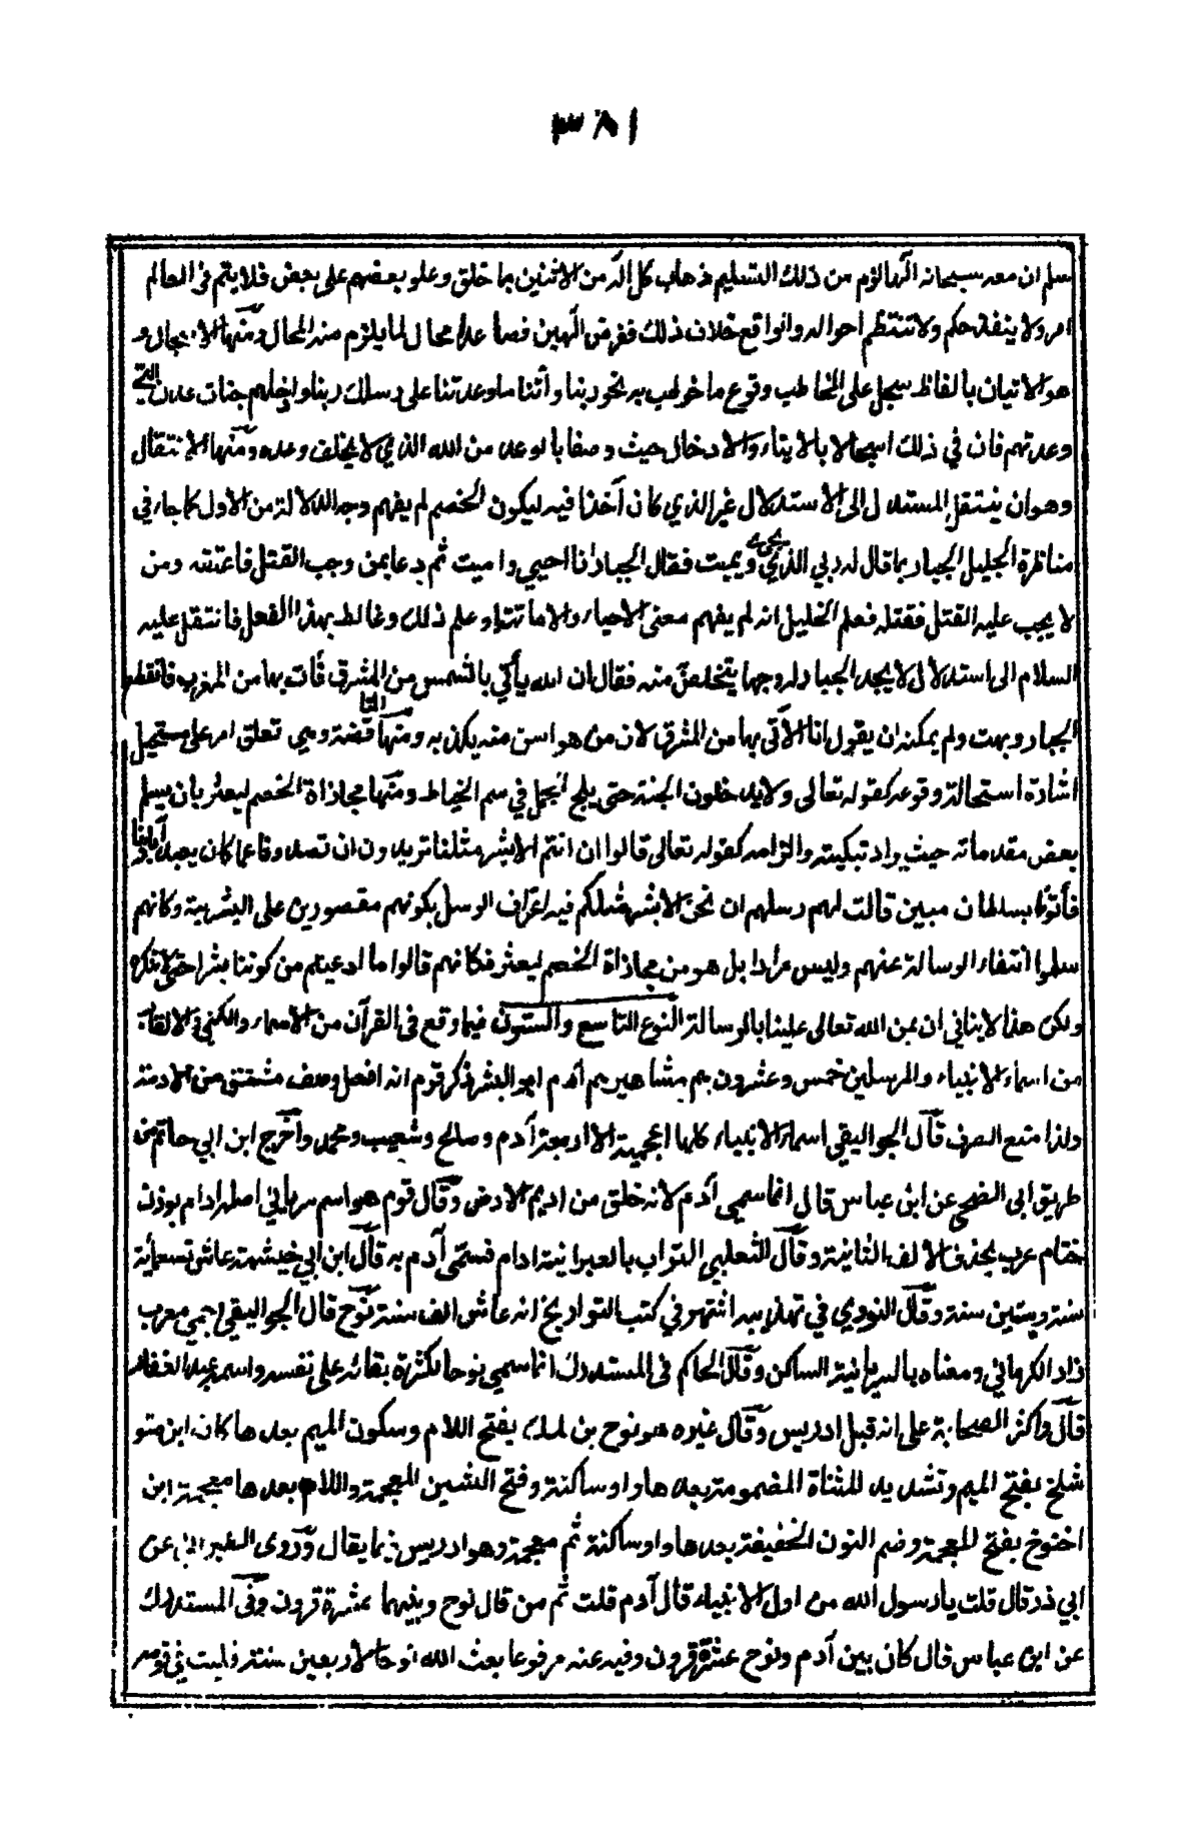 ٣٨١
سلم ان معه سبحانه الها لزم من ذلك التسليم ذهاب كل اله من الاثنين بما خلق وعلو بعضهم على بعض فلا يتم في العالم
امر ولا ينفذ حكم ولا تنتظم احواله والواقع خلاف ذلك ففرض الهين فصاعدا محال لما يلزم منه المحال ومنها الاسجال و
هو الاتيان بالفاظ سجل على المخاطب وقوع ما خوطب به نحو ربنا وأتنا ما وعدتنا على رسلك ربنا وادخلهم جنات عدن التي
وعدتهم فان في ذلك اسجالا بالايتاء والادخال حيث وصفا بالوعد من الله الذي لا يخلف وعده ومنها الانتقال
وهو ان ينتقل المستدل الى الاستدلال غير الذي كان آخذا فيه ليكون الخصم لم يفهم وجه الدلالة من الاول كما جاء في
مناظرة الجليل الجبار بما قال له ربي الذي يحيي ويميت فقال الجبار انا احيي واميت ثم دعا بمن وجب القتل فاعتقه ومن
لا يجب عليه القتل فقتله فعلم الخليل انه لم يفهم معنى الاحياء والاماتة او علم ذلك وغالط بهذا الفعل فانتقل عليه
السلام الى استدلال لا يجد الجبار له وجها يتخلص منه فقال ان الله يأتي بالشمس من المشرق فأت بها من المغرب فانقطع
الجبار وبهت ولم يمكنه ان يقول انا الآتي بها من المشرق لان من هو اسن منه يكذبه ومنها المناقضة وهي تعلق امر على مستحيل
اشارة استحالة وقوعه كقوله تعالى ولا يدخلون الجنة حتى يلج الجمل في سم الخياط ومنها مجاراة الخصم ليعثر بان يسلم
بعض مقدماته حيث يراد تبكيته والزامه كقوله تعالى قالوا ان انتم الا بشر مثلنا تريدون ان تصدونا عما كان يعبد آباؤنا
فأتونا بسلطان مبين قالت لهم رسلهم ان نحن الا بشر مثلكم فيه اعتراف الرسل بكونهم مقصورين على البشرية وكانهم
سلموا انتفاء الرسالة عنهم وليس مرادا بل هو من مجاراة الخصم ليعثر فكانهم قالوا ما ادعيتم من كوننا بشرا حق لا ننكره
ولكن هذا لا ينافي ان يمن الله تعالى علينا بالرسالة النوع التاسع والستون فيما وقع في القرآن من الاسماء والكنى والالقاب
من اسماء الانبياء والمرسلين خمس وعشرون هم مشاهيرهم آدم ابو البشر ذكر قوم انه افعل وصف مشتق من الادمة
ولذا منع الصرف قال الجواليقي اسماء الانبياء كلها اعجمية الا اربعة آدم وصالح وشعيب ومحمد واخرج ابن ابي حاتم من
طريق ابي الضحى عن ابن عباس قال انما سمي آدم لانه خلق من اديم الارض وقال قوم هو اسم سرياني اصله ادام بوزن
ختام عرب بحذف الالف الثانية وقال الثعلبي التراب بالعبرانية ادام فسمى آدم به قال ابن ابي خيثمة عاش تسعمأية
سنة وستين سنة وقال النووي في تهذيبه اشتهر في كتب التواريخ انه عاش الف سنة نوح قال الجواليقي اعجمي معرب
زاد الكرماني ومعناه بالسريانية الساكن وقال الحاكم في المستدرك انما سمي نوحا لكثرة بقائه على نفسه واسمه عبد الغفار
قال واكثر الصحابة على انه قبل ادريس وقال غيره هو نوح بن لمك بفتح اللام وسكون الميم بعدها كاف ابن متو
شلخ بفتح الميم وتشديد المثناة المضمومة بعدها واو ساكنة وفتح الشين المعجمة واللام بعدها معجمة ابن
اخنوخ بفتح المعجمة وضم النون الخفيفة بعدها واو ساكنة ثم معجمة وهو ادريس فيما يقال وروى الطبراني عن
ابي ذر قال قلت يا رسول الله من اول الانبياء قال آدم قلت ثم من قال نوح وبينهما عشرة قرون وفي المستدرك
عن ابن عباس قال كان بين آدم ونوح عشرة قرون وفيه عنه مرفوعا بعث الله نوحا لاربعين سنة فلبث في قومه